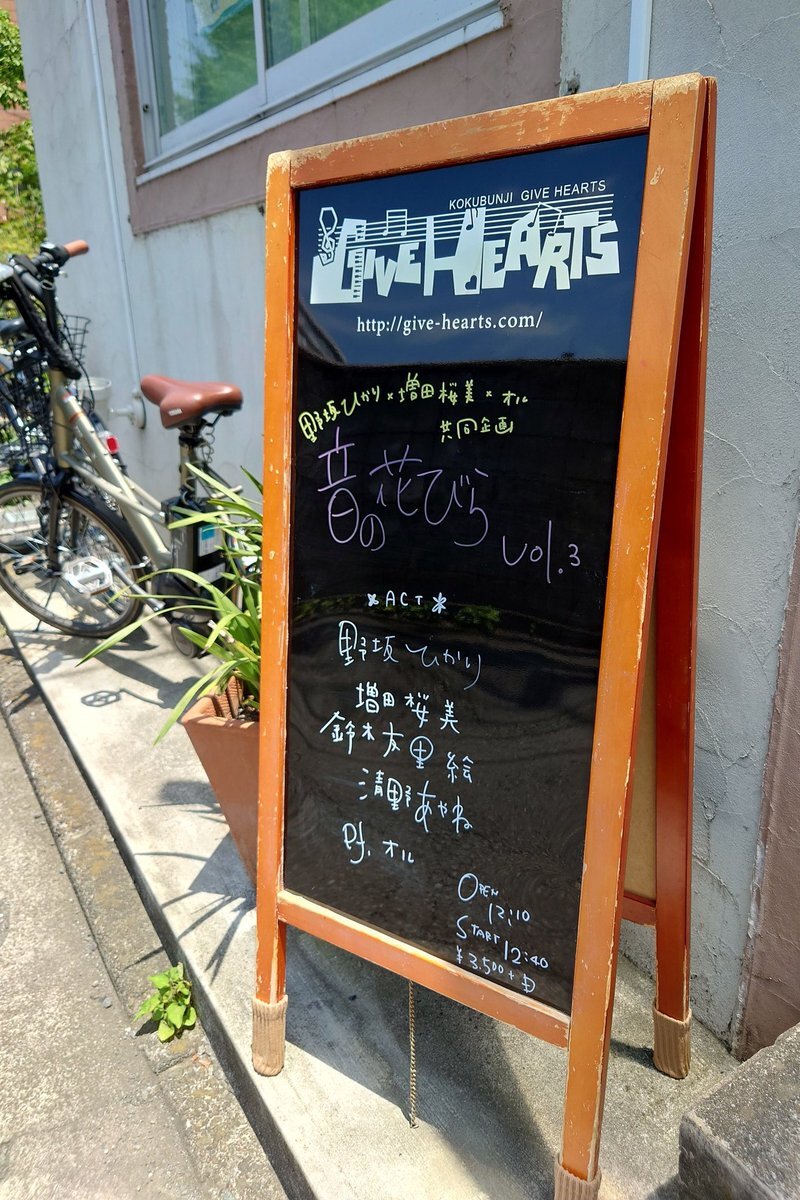 KOKUBUNJI GIVE HEARTS
GIVE HEARTS
http://give-hearts.com/
野坂ひかり×増田桜美×オル
共同企画
音の花びら
vol.3
*ACT*
野坂ひかり
増田桜美
鈴木友里絵
清野あやね
Pf. オル
OPEN
12:10
START 12:40
¥3.500+D